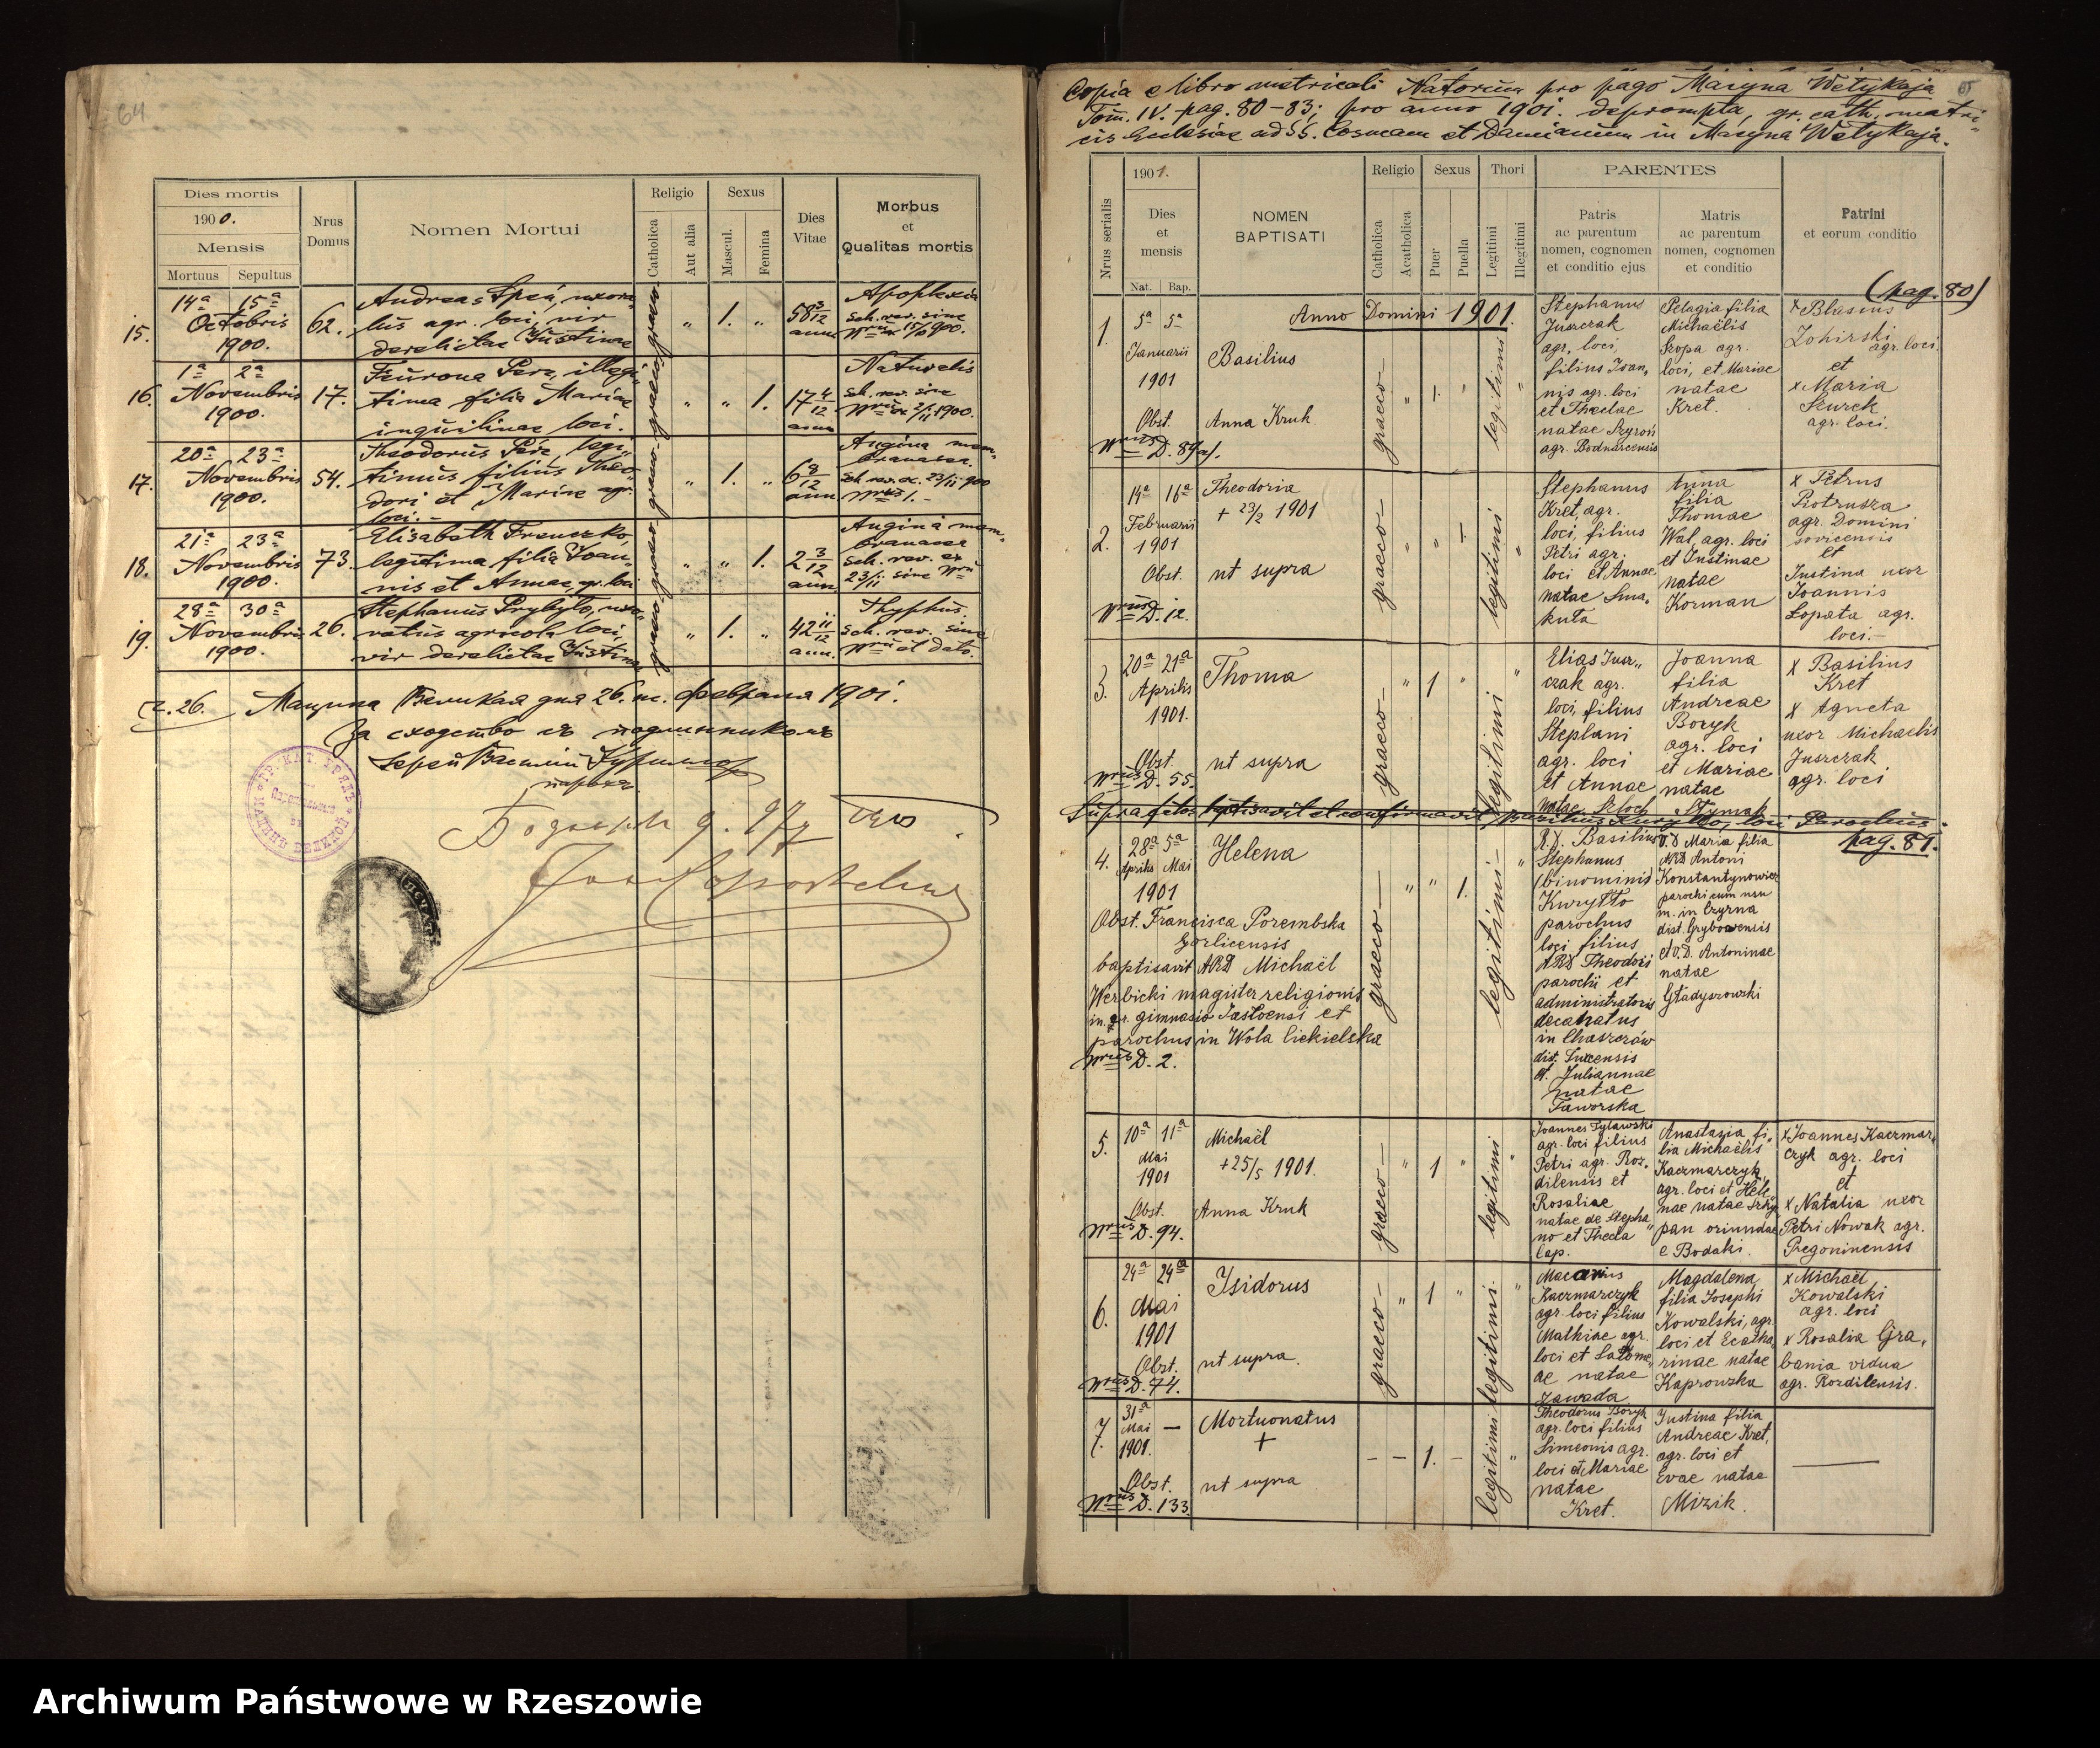 64
Dies mortis
1900.
Mensis
Mortuus Sepultus
Nrus Domus
Nomen Mortui
Religio
Catholica
Aut alia
Sexus
Mascul.
Femina
Dies Vitae
Morbus
et
Qualitas mortis
15.
14ª 15ª
Octobris
1900.
62.
lus agr. loci, vir
derelictae Justinae
graeco
" 1. "
58 3/12
ann
Apoplexia
sch. rev. sine
16.
1ª 2ª
Novembris
1900.
17.
tima filia Mariae
inquilinae loci.
graeco
" " 1.
17 4/12
ann
Naturalis
sch. rev. sine
17.
20ª 23ª
Novembris
1900.
54.
Theodorus Pérz, legi„
timus filius Theo„
dori et Mariae agr.
loci.-
graeco
" 1. "
6 8/12
ann
Angina mem„
branacea.
18.
21ª 23ª
Novembris
1900.
73.
Elisabeth Franczko,
legitima filia Joan„
nis et Annae, gr. loci
graeco
" " 1.
2 3/12
ann
Angina mem„
branacea
sch. rev. ex
19.
28ª 30ª
Novembris
1900.
26.
Stephanus Prybyło, uxo„
ratus agricola loci,
vir derelictae Justinae
graeco
" 1. "
42 11/12
ann.
Thyphus
sch. rev. sine
Nru et dato.
Ч. 26. Мацина Великая дня 26. м. Февраля 1901.
За сходство съ подлинникомъ
Copia e libro metricali Natorum pro pago Maczyna Wełykaja
Tom. IV. pag. 80-83; pro anno 1901. deprompta, gr. cath. matri„
cis Ecclesiae ad SS. Cosmam et Damianum in Maczyna Wełykaja.
Nrus serialis
1901.
Dies
et
mensis
Nat. Bap.
NOMEN
BAPTISATI
Religio
Catholica
Acatholica
Sexus
Puer
Puella
Thori
Legitimi
Illegitimi
PARENTES
Patris
ac parentum
nomen, cognomen
et conditio ejus
Matris
ac parentum
nomen, cognomen
et conditio
Patrini
et eorum conditio
(pag. 80)
Anno Domini 1901.
1
5ª 5ª
Januarii
1901
Basilius
Obst. Anna Kruk
Nrus D. 89a/.
graeco
" 1. "
legitimi
"
Stephanus
Juszczak
agr. loci,
filius Joan„
nis agr. loci
et Theclae
natae Szyroń
agr. Bodnarcensis
Pelagia filia
Michaëlis
Szopa agr.
loci, et Mariae
natae
Kret.
x Blasius
Zohirski
agr. loci.
et
x Maria
Szurek
agr. loci.
2.
14ª 16ª
Februarii
1901
Theodoria
+ 23/2 1901
Obst. ut supra
Nrus D. 12.
graeco
legitimi
Stephanus
Kret, agr.
loci, filius
Petri agr.
loci et Annae
natae Sma„
kuta
Anna
filia
Thomae
Wal, agr. loci
et Justinae
natae
Korman
x Petrus
Piotrusza
agr. Domini
sovicensis
et
Justina uxor
Joannis
Łopata agr.
loci.-
3.
20ª 21ª
Aprilis
1901.
Thoma
Obst. ut supra
Nrus D. 55.
graeco
" 1 "
legitimi
"
Elias Jusz„
czak agr.
loci, filius
Stephani
agr. loci
et Annae
natae Szloch
Joanna
filia
Andreae
Boryk
agr. loci
et Mariae
natae
Stymak
x Basilius
Kret
x Agneta
uxor Michaëlis
Juszczak
agr. loci
Supra fatos baptisavit et confirmavit Basilius Kuryłło, loci Parochus.
pag. 81.
4.
28ª 5ª
Aprilis Mai
1901
Helena
Obst. Francisca Porembska
Gorlicensis
baptisavit ARD Michaël
Werbicki magister religionis
in gr. gimnasio Jasłoensi et
parochus in Wola Cieklelska
Nrus D. 2.
graeco
" " 1.
legitimi
"
R.D. Basilius
Stephanus
(binominis
Kuryłło
parochus
loci filius
ARD Theodori
parochi et
administratoris
decanatus
in Chaszczów
dist. Turcensis
et Juliannae
natae
Jaworska
V.D Maria filia
ARD Antoni
Konstantynowicz
parochi cum usu
m. in Czyrna
dist. Grybowensis
et V.D. Antoninae
natae
Gładyszowski
5.
10ª 11ª
Mai
1901
Michaël
+25/5 1901.
Obst. Anna Kruk
Nrus D. 94.
graeco
" 1 "
legitimi
"
Joannes Tylawski
agr. loci filius
Petri agr. Roz„
dilensis et
Rosaliae
natae de Stepha„
no et Thecla
Cap.
Anastazia fi„
lia Michaëlis
Kaczmarczyk,
agr. loci et Hele„
nae natae Szky
pan oriundae
e Bodaki.
x Joannes Kaczmar„
czyk agr. loci
et
x Natalia uxor
Petri Nowak agr.
Pregoninensis
6.
24ª 24ª
Mai
1901
Isidorus
Obst. ut supra.
Nrus D. 74.
graeco
" 1 "
legitimi
"
Macarius
Kaczmarczyk
agr. loci filius
Mathiae agr.
loci et Salome„
ae natae
Zawada
Magdalena
filia Josephi
Kowalski, agr.
loci et Ecatha„
rinae natae
Kaprowzka
x Michaël
Kowalski
agr. loci
x Rosalia Gra„
bania vidua
agr. Rozdilensis.
7.
31ª
Mai —
1901.
Mortuonatus
+
Obst. ut supra
Nrus D. 133
- - 1. -
legitimi
"
Theodorus Boryk
agr. loci filius
Simeonis agr.
loci et Mariae
natae
Kret.
Justina filia
Andreae Kret,
agr. loci et
Evae natae
Mizik.
Archiwum Państwowe w Rzeszowie